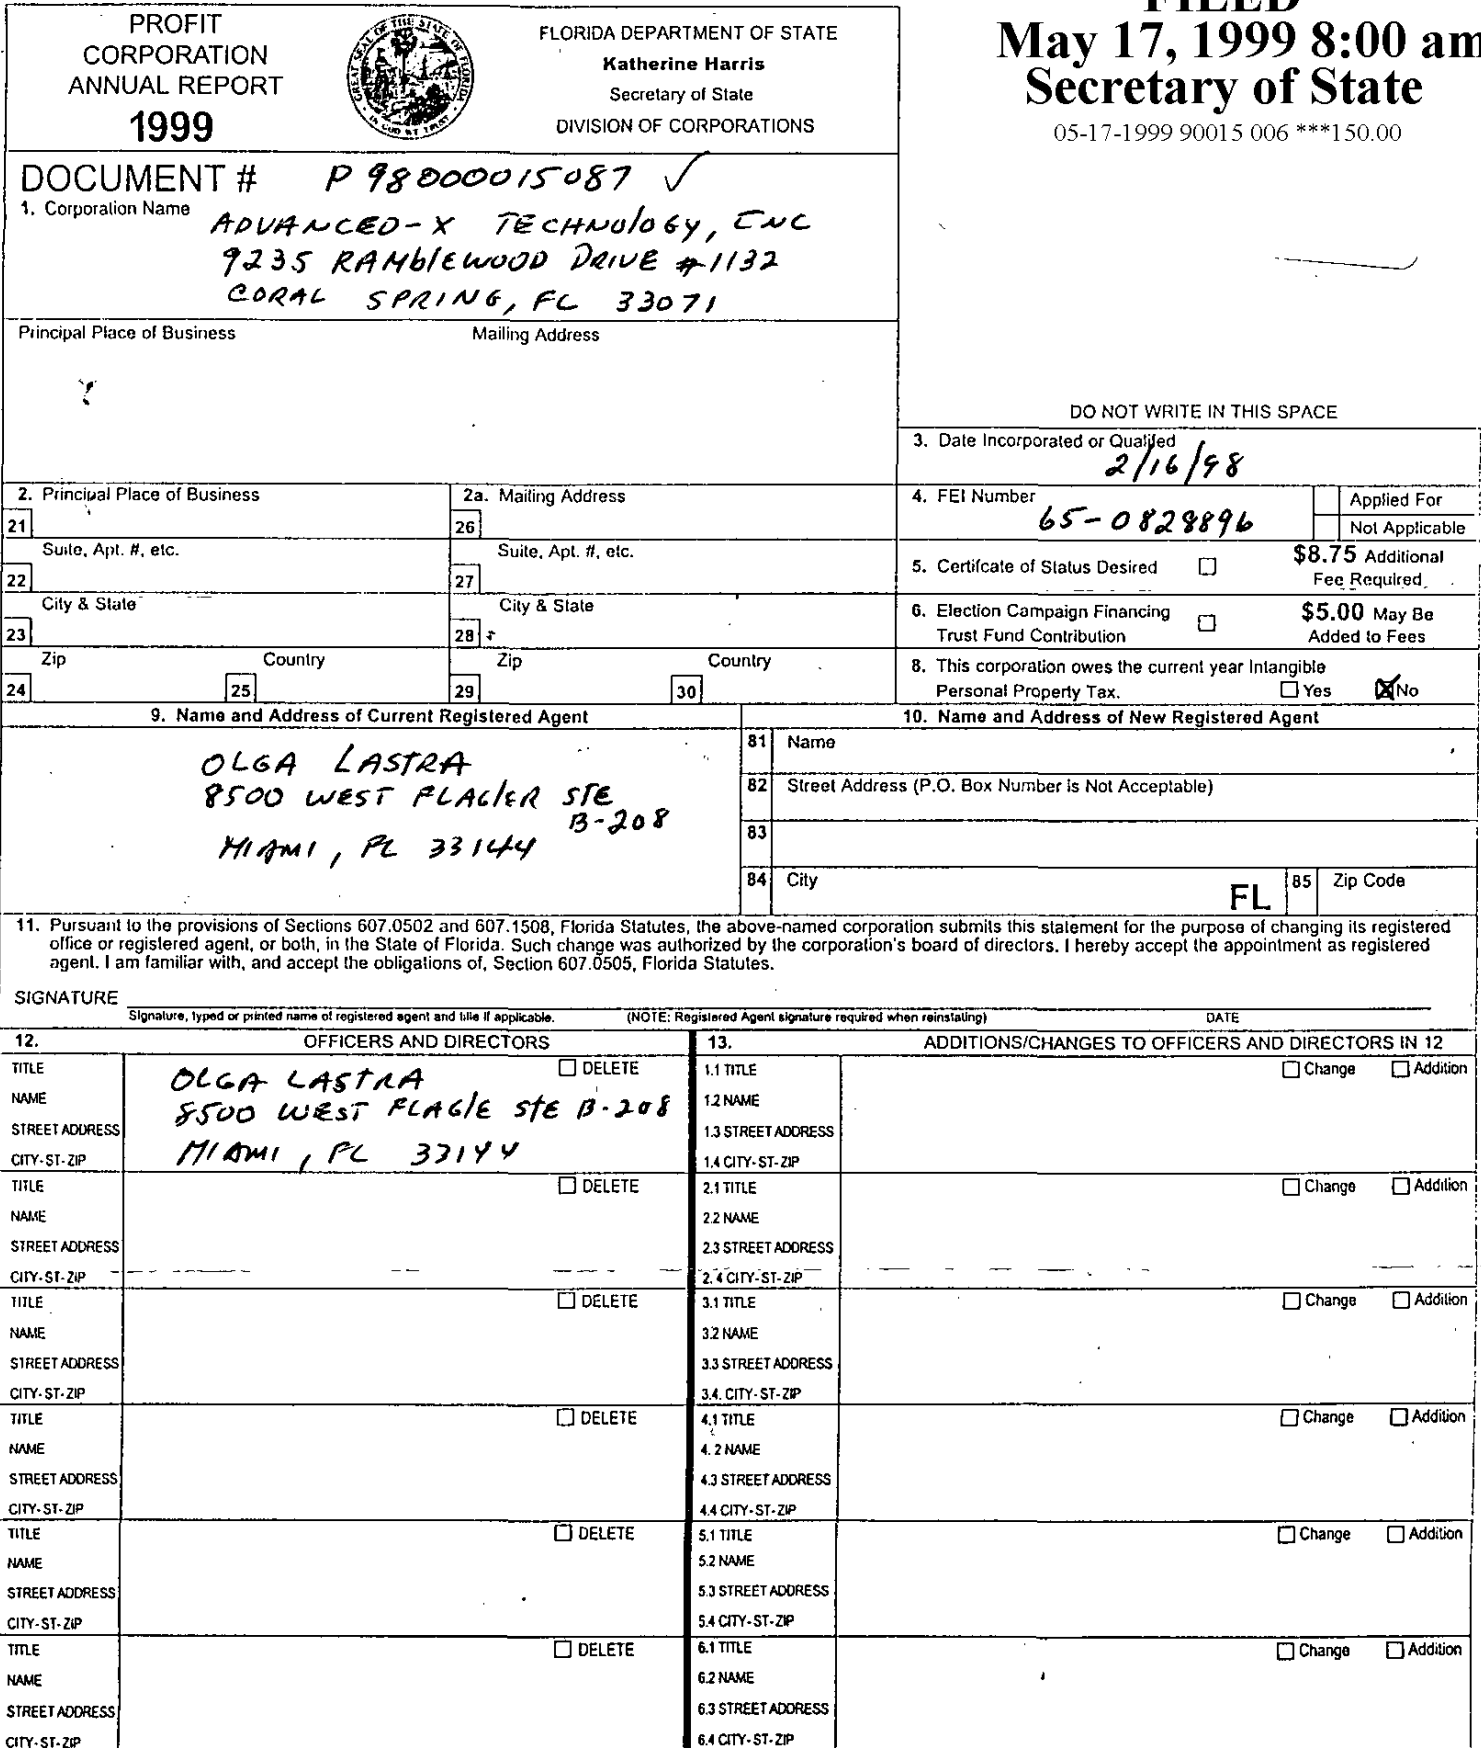 PROFIT
CORPORATION
ANNUAL REPORT
1999
GREAT SEAL OF THE STATE OF FLORIDA
IN GOD WE TRUST
FLORIDA DEPARTMENT OF STATE
Katherine Harris
Secretary of State
DIVISION OF CORPORATIONS
FILED
May 17, 1999 8:00 am
Secretary of State
05-17-1999 90015 006 ***150.00
DOCUMENT # P98000015087 ✓
1. Corporation Name
ADVANCED-X TECHNOLOGY, INC
9235 RAMBLEWOOD DRIVE #1132
CORAL SPRING, FL 33071
Principal Place of Business Mailing Address
DO NOT WRITE IN THIS SPACE
3. Date Incorporated or Qualifed
2/16/98
2. Principal Place of Business 2a. Mailing Address
21 26
4. FEI Number 65-0828896 Applied For
Not Applicable
Suite, Apt. #, etc. Suite, Apt. #, etc.
22 27
5. Certifcate of Status Desired ☐ $8.75 Additional
Fee Required
City & State City & State
23 28
6. Election Campaign Financing ☐ $5.00 May Be
Trust Fund Contribution Added to Fees
Zip Country Zip Country
24 25 29 30
8. This corporation owes the current year Intangible
Personal Property Tax. ☐ Yes ☒ No
9. Name and Address of Current Registered Agent
OLGA LASTRA
8500 WEST FLAGLER STE
B-208
MIAMI, FL 33144
10. Name and Address of New Registered Agent
81 Name
82 Street Address (P.O. Box Number is Not Acceptable)
83
84 City FL 85 Zip Code
11. Pursuant to the provisions of Sections 607.0502 and 607.1508, Florida Statutes, the above-named corporation submits this statement for the purpose of changing its registered
office or registered agent, or both, in the State of Florida. Such change was authorized by the corporation's board of directors. I hereby accept the appointment as registered
agent. I am familiar with, and accept the obligations of, Section 607.0505, Florida Statutes.
SIGNATURE
Signature, typed or printed name of registered agent and title if applicable. (NOTE: Registered Agent signature required when reinstating) DATE
12. OFFICERS AND DIRECTORS
13. ADDITIONS/CHANGES TO OFFICERS AND DIRECTORS IN 12
TITLE ☐ DELETE
NAME OLGA LASTRA
STREET ADDRESS 8500 WEST FLAGLE STE B-208
CITY-ST-ZIP MIAMI, FL 33144
1.1 TITLE ☐ Change ☐ Addition
1.2 NAME
1.3 STREET ADDRESS
1.4 CITY-ST-ZIP
TITLE ☐ DELETE
NAME
STREET ADDRESS
CITY-ST-ZIP
2.1 TITLE ☐ Change ☐ Addition
2.2 NAME
2.3 STREET ADDRESS
2.4 CITY-ST-ZIP
TITLE ☐ DELETE
NAME
STREET ADDRESS
CITY-ST-ZIP
3.1 TITLE ☐ Change ☐ Addition
3.2 NAME
3.3 STREET ADDRESS
3.4. CITY-ST-ZIP
TITLE ☐ DELETE
NAME
STREET ADDRESS
CITY-ST-ZIP
4.1 TITLE ☐ Change ☐ Addition
4.2 NAME
4.3 STREET ADDRESS
4.4 CITY-ST-ZIP
TITLE ☐ DELETE
NAME
STREET ADDRESS
CITY-ST-ZIP
5.1 TITLE ☐ Change ☐ Addition
5.2 NAME
5.3 STREET ADDRESS
5.4 CITY-ST-ZIP
TITLE ☐ DELETE
NAME
STREET ADDRESS
CITY-ST-ZIP
6.1 TITLE ☐ Change ☐ Addition
6.2 NAME
6.3 STREET ADDRESS
6.4 CITY-ST-ZIP